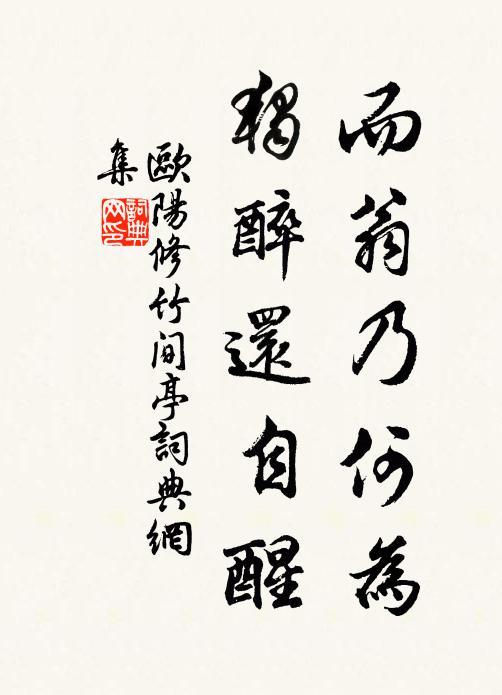 而翁乃何為
獨醉還自醒
歐陽修竹间亭詞典網
集
詞典网印